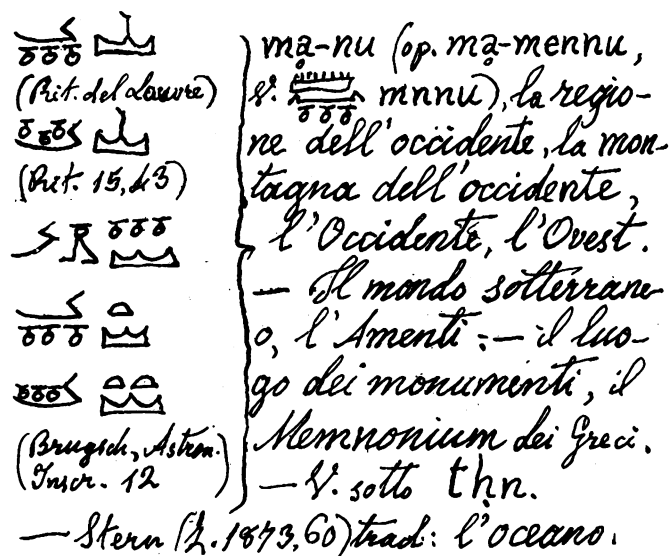 (Rit. del Louvre)
(Rit. 15, 43)
(Brugsch, Astron.
Inscr. 12
mạ-nu (op. mạ-mennu,
V. mnnu), la regio-
ne dell'occidente, la mon-
tagna dell'occidente,
l'Occidente, l'Ovest.
— Il mondo sotterrane-
o, l'Amenti; — il luo-
go dei monumenti, il
Memnonium dei Greci.
— V. sotto tḥn.
— Stern (Z. 1873, 60) trad: l'oceano.